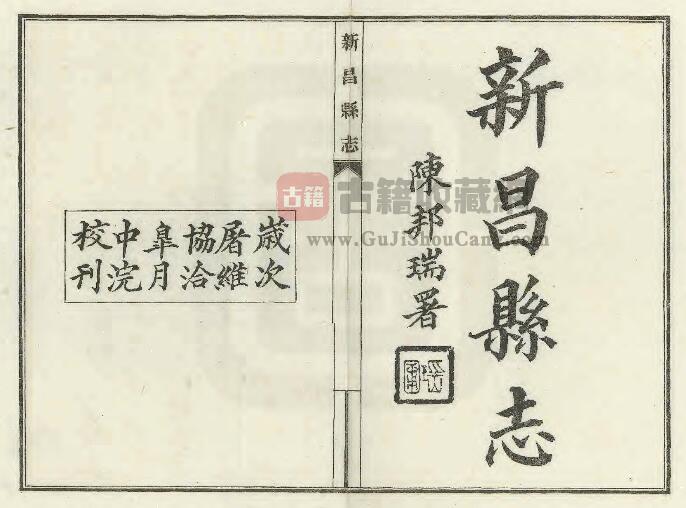 新昌縣志
陳邦瑞署
新昌縣志
歲次
屠維
協洽
皐月
中浣
校刊
古籍
古籍收藏
www.GuJiShouCang.com